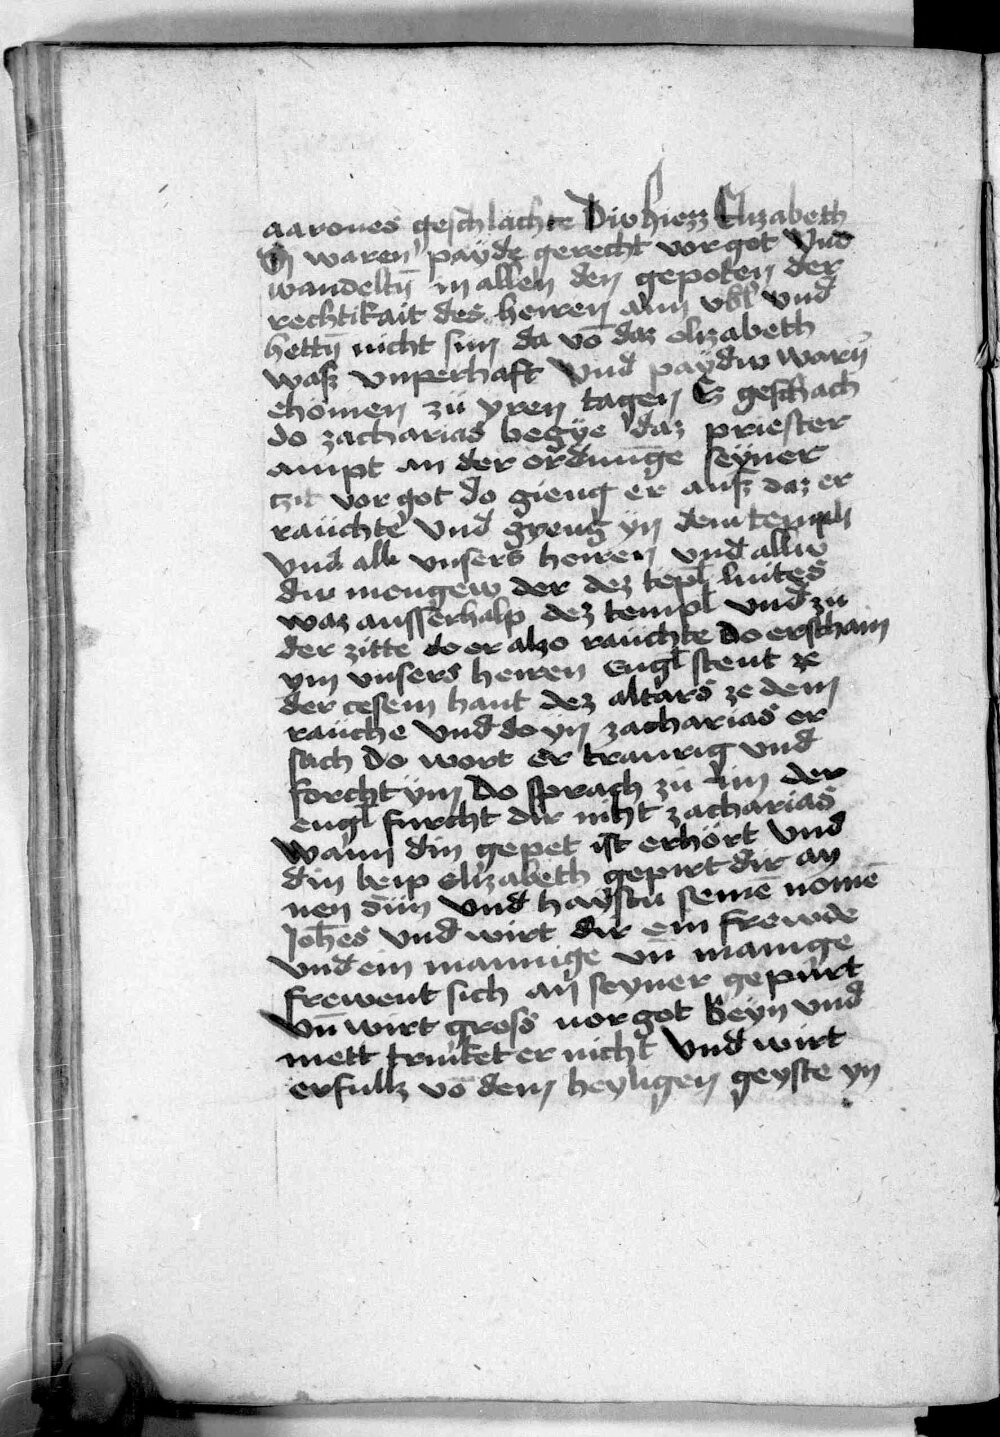 aarones geschlächte Div hiezz Elizabeth
Sy waren payde gerecht vor got Vnd
wandeltn̄ in allen den gepoten der
rechtikait des herren ann vbl vnd
hettn̄ nicht sun da vō daz elizabeth
wasz vnperhaft Vnd paydiv warn̄
chomen zü yren tagen Ez geschach
do zacharias begye daz priester
ampt an der ordnunge seyner
tzit vor got do gieng er ausz daz er
raüchte Vnd gyeng yn dem tempel
Vnd alle vnsers herren vnd alliv
div mengew der dez tepl luites
waz ausserhalp dez templ vnd zü
der zitte do er also raüchte do erschain
ym vnsers herren Engl stent ze
der cesem hant dez altars ze dem
raüche Vnd do yn zacharias er
sach do wort er traurig vnd
forcht ym Do sprach zü im der
engl furcht dir niht zacharias
Wann din gepet ist erhört Vnd
din beip elizabeth gepirt dir an
nen sün Vnd haystu seinē nomē
Joh̄es Vnd wirt dir ein frewde
vnd ein mannige vn̄ manige
frewent sich an seyner gepürt
Vn̄ wirt gross vor got Beyn vnd
mett trinket er nicht Vnd wirt
erfullz vō dem heyligen geyste yn